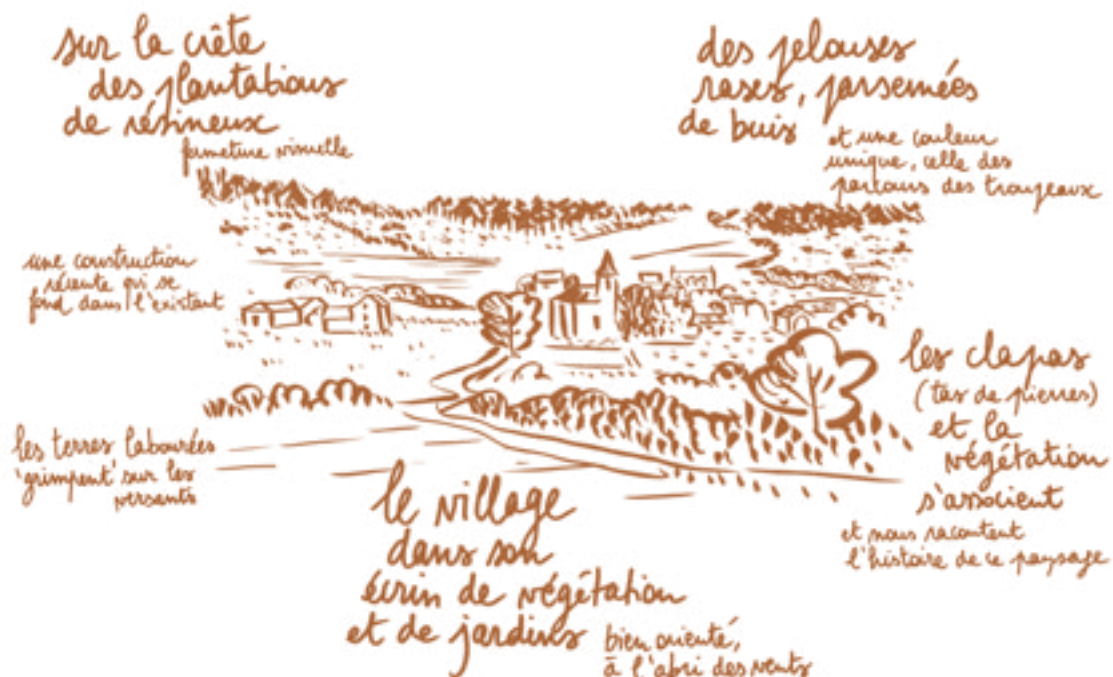 sur la crête
des plantations
de résineux
fermeture visuelle
des pelouses
rases, parsemées
de buis
et une couleur
unique, celle des
parcours des troupeaux
une construction
récente qui se
fond dans l'existant
les clapas
(tas de pierres)
et la
végétation
s'associent
et nous racontent
l'histoire de ce paysage
les terres labourées
'grimpent' sur les
versants
le village
dans son
écrin de végétation
et de jardins
bien orienté,
à l'abri des vents